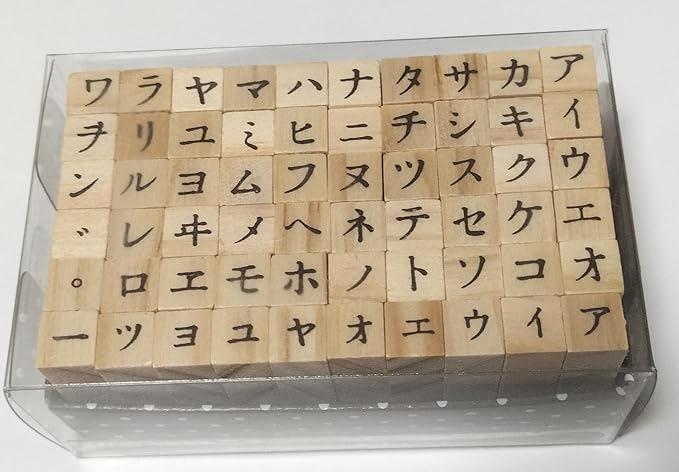 アイウエオァ
カキクケコィ
サシスセソゥ
タチツテトェ
ナニヌネノォ
ハヒフヘホャ
マミムメモュ
ヤユヨヰヱョ
ラリルレロッ
ワヲン゛゜ー